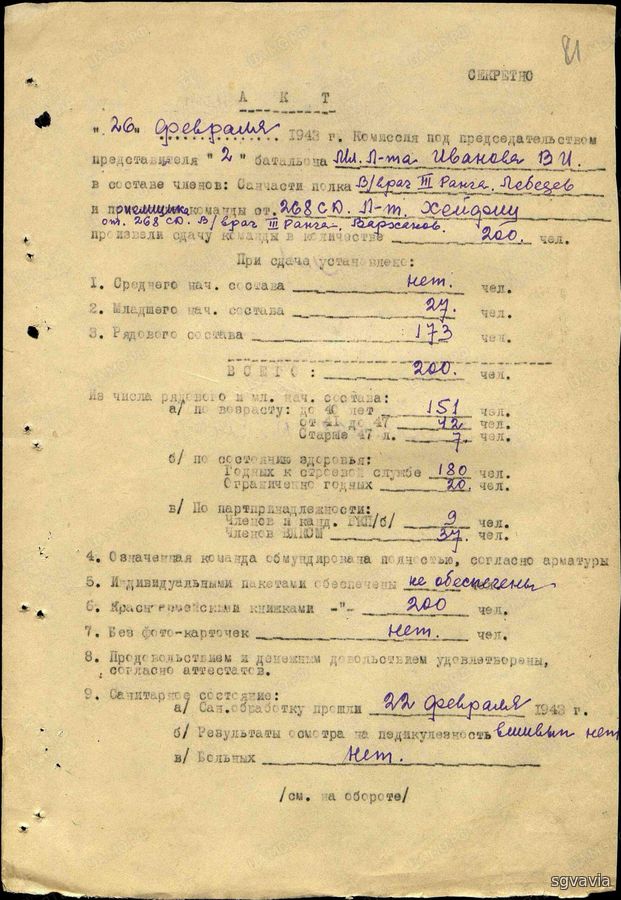 81
СЕКРЕТНО
А К Т
"26" февраля 1943 г. Комиссия под председательством
представителя "2" батальона Мл. Л-та Иванова В И.
в составе членов: Санчасти полка В/врач III Ранга. Лебедев
и приемщика команды от 268 СД. Л-т.
от. 268 СД. В/врач III Ранга.
произвели сдачу команды в количестве 200. чел.
При сдаче установлено:
1. Среднего нач. состава нет. чел.
2. Младшего нач. состава 27. чел.
3. Рядового состава 173 чел.
ВСЕГО: 200. чел.
Из числа рядового и мл. нач. состава:
а/ по возрасту: до 40 лет 151 чел.
от 41 до 47 42 чел.
Старше 47 л. 7. чел.
б/ по состоянию здоровья:
Годных к строевой службе 180 чел.
Ограниченно годных 20. чел.
в/ По партпринадлежности:
Членов и канд. ВКП/б/ 9 чел.
Членов ВЛКСМ 37. чел.
4. Означенная команда обмундирована полностью, согласно арматуры
5. Индивидуальными пакетами обеспечены не обеспечены
6. Красноармейскими книжками -"- 200 чел.
7. Без фото-карточек нет. чел.
8. Продовольствием и денежным довольствием удовлетворены,
согласно аттестатов.
9. Санитарное состояние:
а/ Сан.обработку прошли 22 февраля 1943 г.
б/ Результаты осмотра на педикулезность вшивых нет
в/ Больных нет.
/см. на обороте/
sgvavia